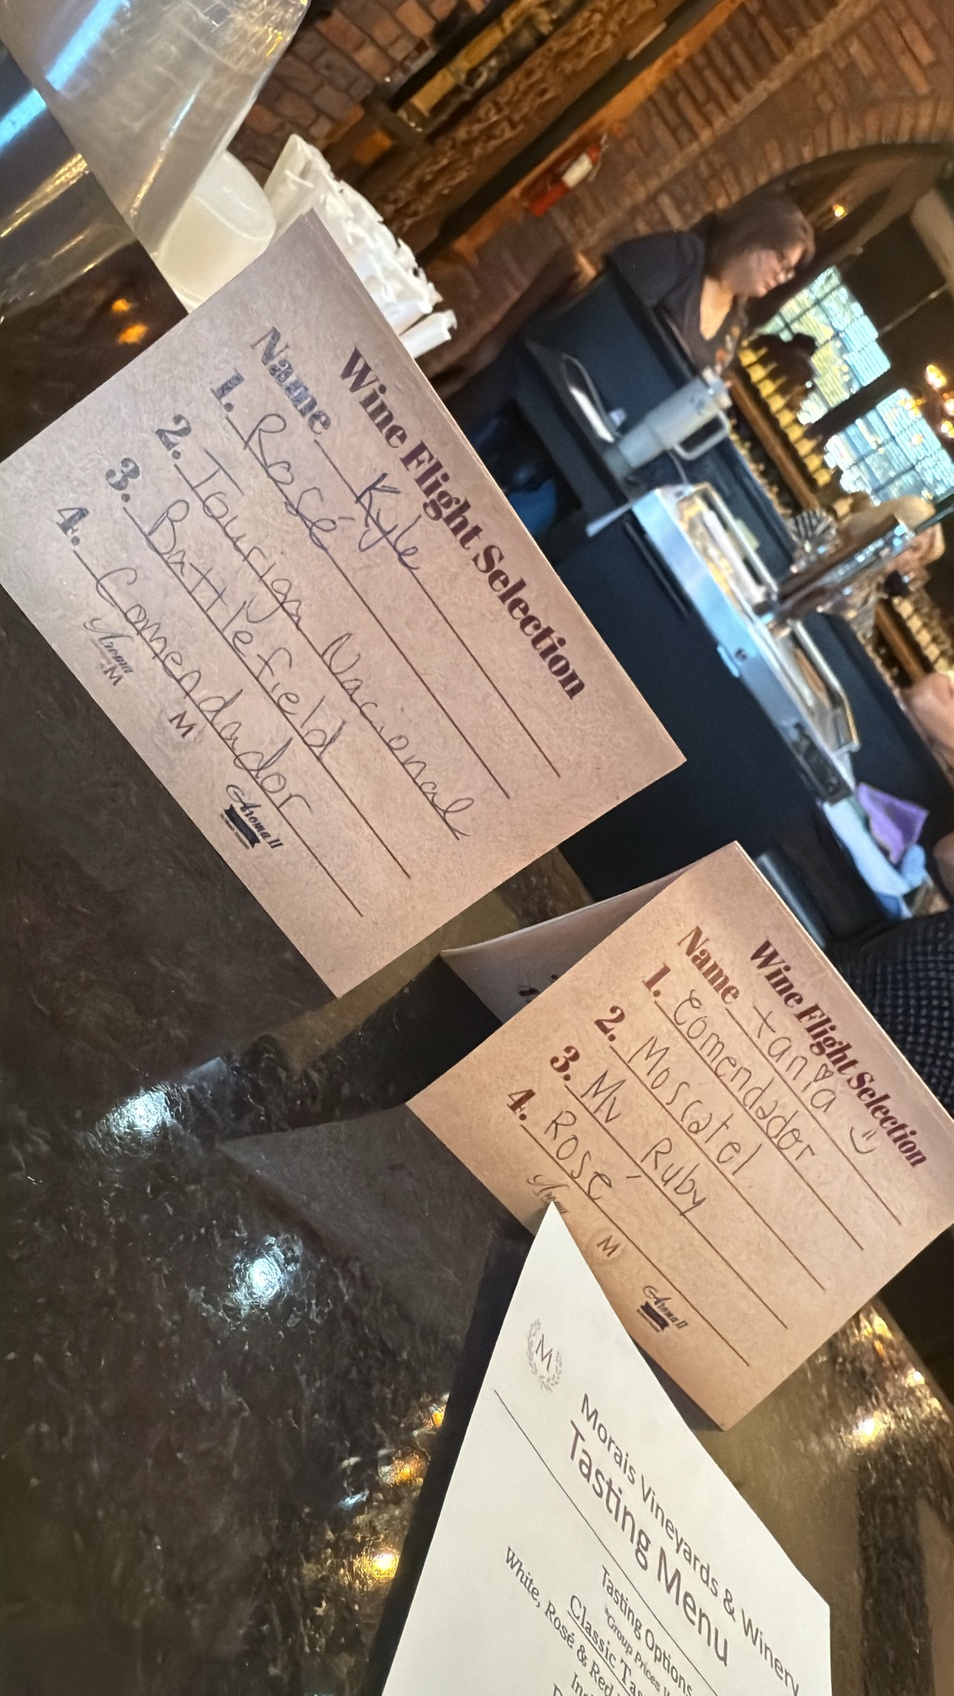 Wine Flight Selection
Name Kyle
1. Rosé
2. Touriga Nacional
3. Battlefield
4. Comendador
Aroma M
M
Aroma II
Wine Flight Selection
Name tania
1. Comendador
2. Moscatel
3. Mv Ruby
4. Rosé
M
Aroma II
M
Morais Vineyards & Winery
Tasting Menu
Tasting Options
*Group Prices
Classic Tas
White, Rosé & Red